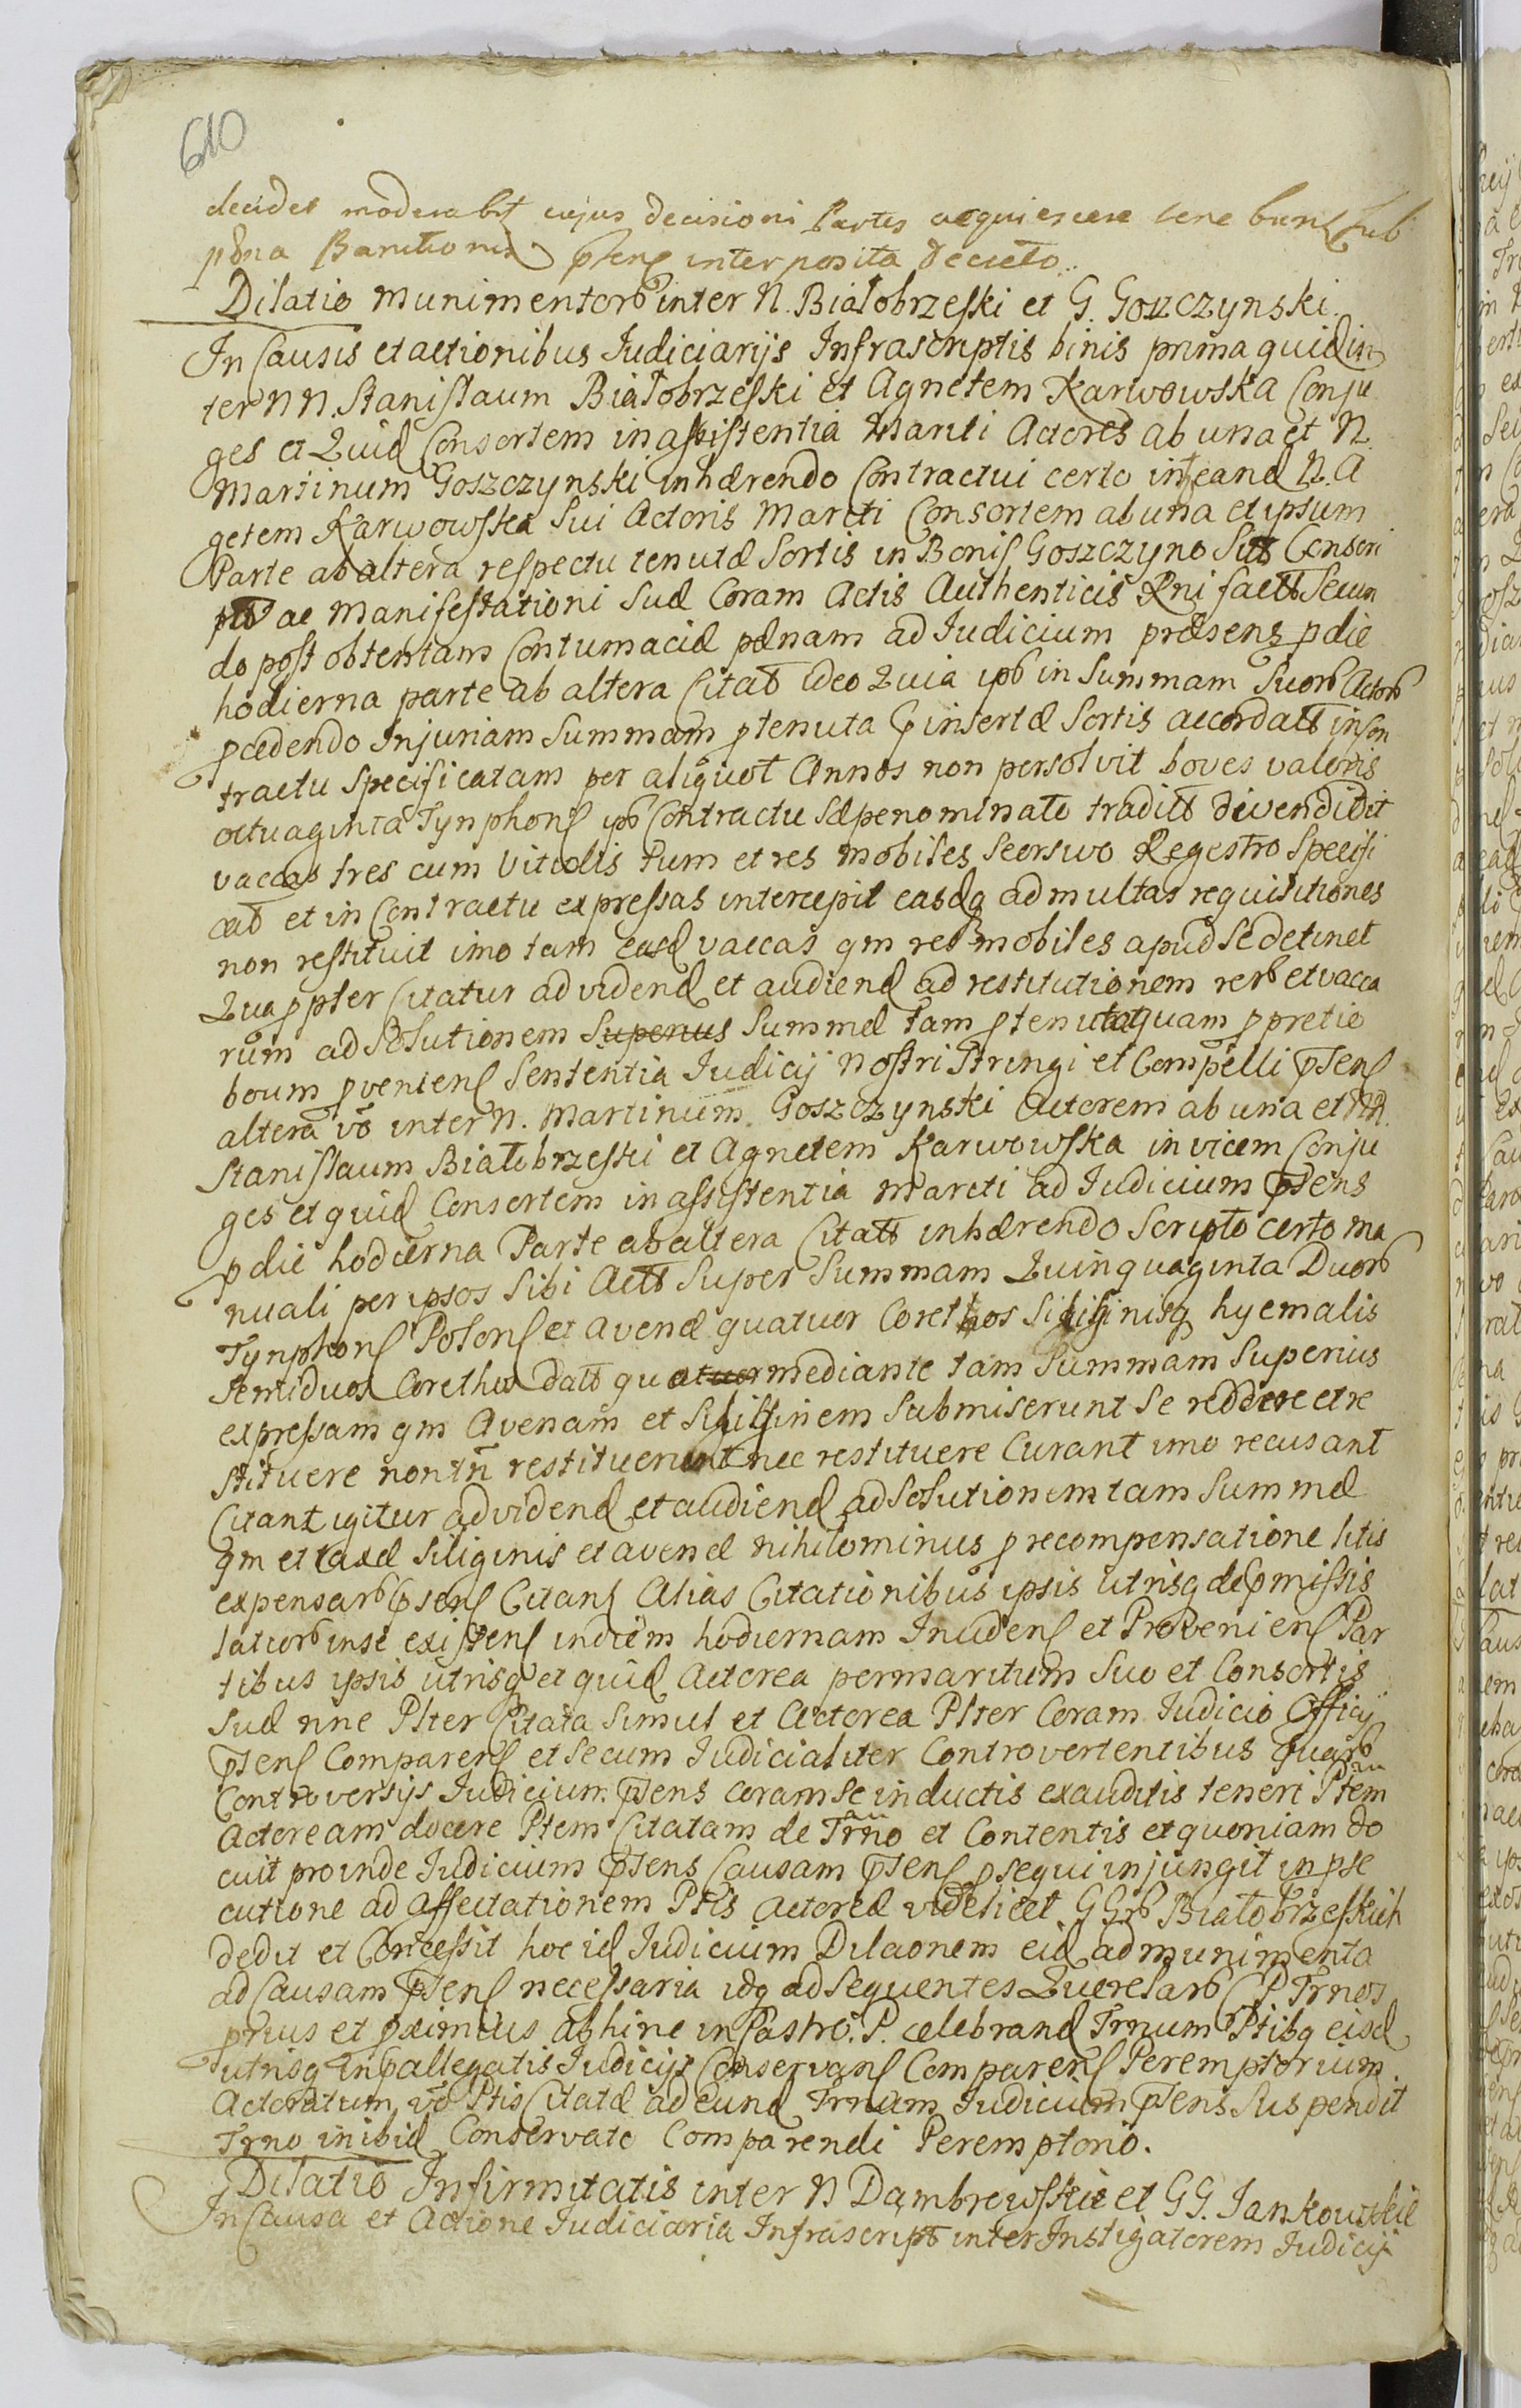 610
decidet moderabit cujus decisioni Partes acquiescere tenebunt sub
pæna Banitionis pñti interposita decreto.
Dilatio Munimentorum inter N. Białobrzeski et G. Goszczynski.
In Causis et actionibus Judiciarijs Infrascriptis binis prima quid in
ter NN. Stanislaum Białobrzeski et Agnetem Karwowska Conju
ges et Quid Consortem in assistentia Mariti Actores ab una et N.
Martinum Goszczynski inhærendo Contractui certo int eand N. A
getem Karwowska sui Actoris Mariti Consortem ab una et ipsum
Parte ab altera respectu tenutæ Sortis in Bonis Goszczyno Conscri
pto ac Manifestationi suæ Coram Actis Authenticis Rni factæ Secun
do post obtentam Contumaciæ pænam ad Judicium præsens p die
hodierna parte ab altera Citat ideo Quia ipse in Summam Suorum Actorum
pcedendo Injuriam Summam p tenuta insertæ Sortis accordatam in Con
tractu Specificatam per aliquot Annos non persolvit boves valoris
octuaginta Tynphon Contractu sæpenominato traditos divendidit
vaccas tres cum Vitulis tum et res mobiles seorsivo Regestro Specifi
cat et in Contractu expressas intercepit easdq ad multas requisitiones
non restituit imo tam easd vaccas qm res mobiles apud se detinet
Qua ppter Citatur ad vidend et audiend ad restitutionem rerum et vacca
rum ad solutionem Superius Summæ tam p tenuta quam p pretio
boum pvenien Sententia Judicij Nostri Stringi et Compelli pñsen
altera vō inter N. Martinum Goszczynski Actorem ab una et NN.
Stanislaum Białobrzeski et Agnetem Karwowska invicem Conju
ges et quid Consortem in assistentia Mareti ad Judicium pñsens
p die hodierna Parte ab altera Citatos inhærendo Scripto certo ma
nuali per ipsos sibi Super Summam Quinquaginta Duorum
Tynphon Polon et avenæ quatuor Corethos Siliginisq hyemalis
semiduos Corethos quatuor mediante tam Summam Superius
expressam qm Avenam et Siliginem submiserunt se reddere et re
stituere non tñ restituerunt nec restituere Curant imo recusant
Citant igitur ad vidend et audiend ad Solutionem tam Summæ
qm et Siliginis et avenæ nihilominus p recompensatione litis
expensarum pñsen Citan Alias Citationibus ipsis utrisq de pmissis
latiorum in se existen in diem hodiernam Inciden et Provenien Par
tibus ipsis utrisq et quid Actorea per maritum suo et Consortis
suæ nne Plter Citata simul et Actorea Plter Coram Judicio Officij
pñsen Comparen et secum Judicialiter Controvertentibus Quarum
Controversijs Judicium pñsens coram se inductis exauditis teneri Ptem
Actoream docere Ptem Citatam de Trno et Contentis et quoniam do
cuit proinde Judicium pñsens Causam pñsen psequi injungit in pse
cutione ad affectationem Ptis Actoreæ videlicet GGrum Białobrzeskich
dedit et Concessit hoc id Judicium Dilaonem eid ad munimenta
ad Causam pñsen necessaria idq ad sequentes Querelarum Trnos
prius et pximius abhinc in Castro. P. celebrand Trnum Ptibq eisd
utrisq in pallegatis Judicijs Conservans Comparen Peremptorium.
Actoratum vō Ptis Citatæ ad eund Trnum Judicium pñsens suspendit
Trno inibid Conservato Comparendi Peremptorio.
Dilatio Infirmitatis inter N Dąmbrowskie et GG. Jankowskie
In Causa et Actione Judiciaria Infrascript inter Instigatorem Judicij